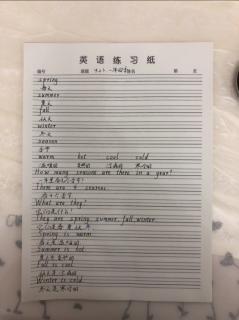 英 语 练 习 纸
编号 班级 姓名 第 页
spring
春天
summer
夏天
fall
秋天
winter
冬天
season
季节
warm hot cool cold
温暖的 凉爽的 寒冷的
How many seasons are there in a year?
一年里有几个季节?
There are 4 seasons.
有4个季节
What are they?
它们是什么?
They are spring summer fall winter.
它们是春夏秋冬
Spring is warm.
春天是温暖的
Summer is hot.
夏天是炎热的
Fall is cool
秋天是凉爽的
Winter is cold
冬天是寒冷的